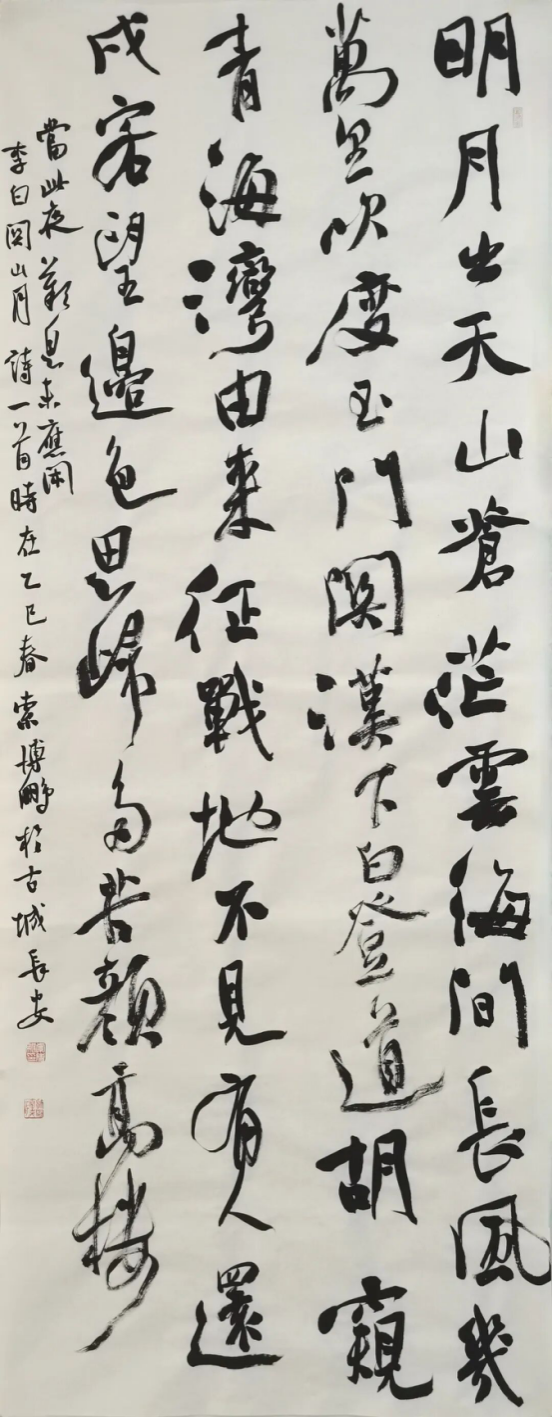 明月出天山蒼茫雲海間長風幾
萬里吹度玉門関漢下白登道胡窺
青海灣由來征戰地不見有人還
戍客望邊色思歸多苦顏高樓
當此夜歎息未應閑
李白関山月詩一首時在乙巳春索博鵬於古城長安